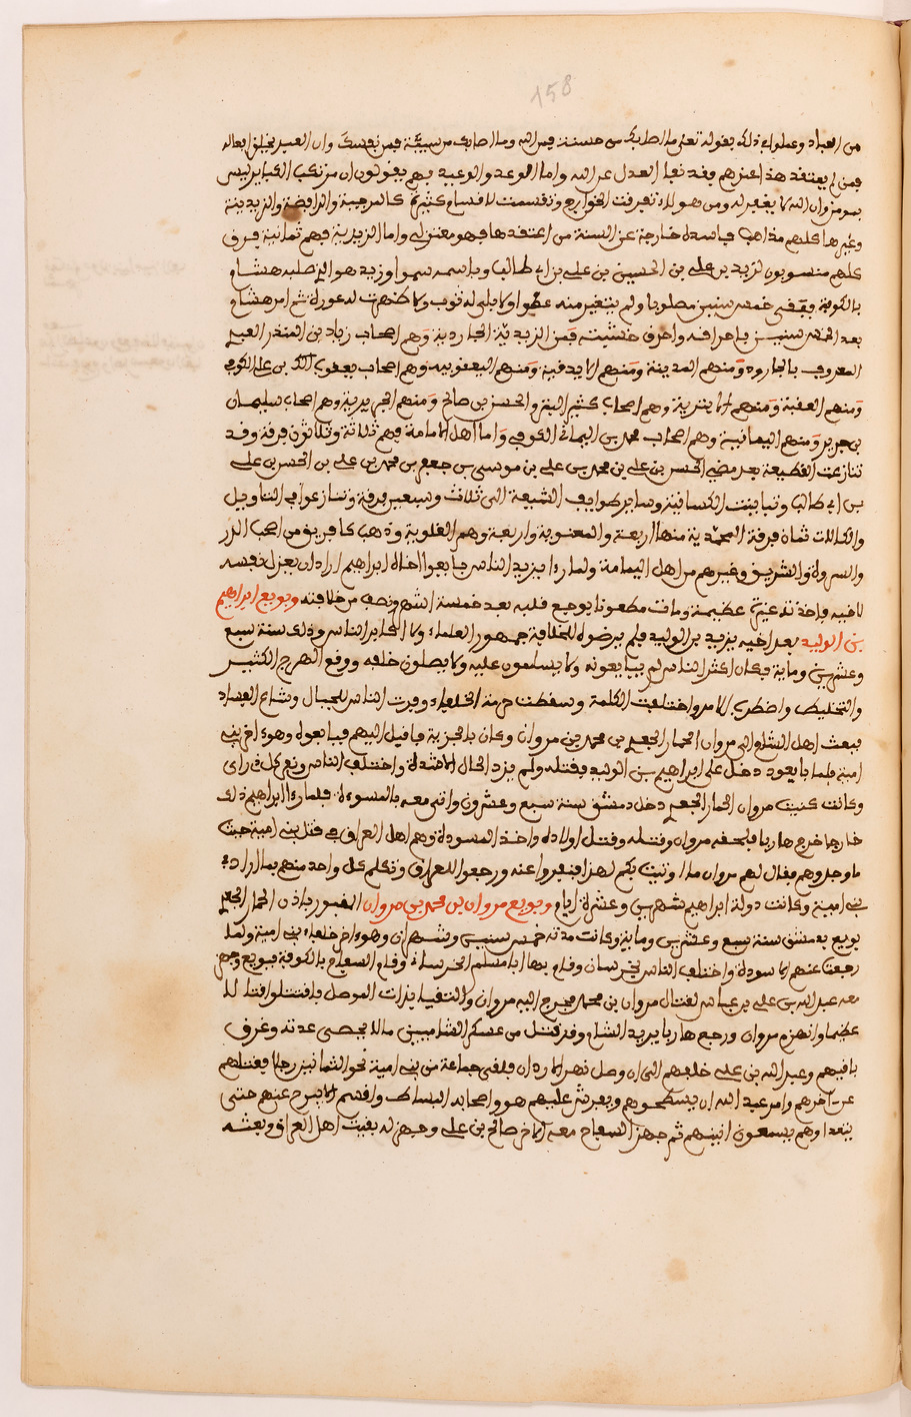 158
من العباد وعملوا في ذلك بقوله تعلى ما اصابك من حسنة فمن الله وما اصابك من سيئة فمن نفسك وان العبد يخلق افعاله
فمن لم يعتقد هذا عندهم فقد نفا العدل عن الله واما الوعد والوعيد فهم يقولون ان مرتكب الكباير ليس
بمومن وان الله لا يغفر له ومن هولاء تفرقت الخوارج وتقسمت لاقسام كثيرة كالمرجية والرافضة والزيدية
وغيرها كلهم مذاهب فاسدة خارجة عن السنة من اعتقدها فهو معتزلي واما الزيدية فهم ثمانية فرق
كلهم منسوبون لزيد بن علي بن الحسين بن علي بن ابي طالب وباسمه سموا وزيد هو الذي صلبه هشام
بالكوفة فبقي خمس سنين مطلوبا ولم يتغير منه عضوا ولا بلي له ثوب ولا ظهرت له عورة ثم امر هشام
بعد الخمس سنين باحراقه واحرق خشبته فمن الزيدية الجارودية وهم اصحاب زياد بن المنذر العبدي
المعروف بالجارود ومنهم المدينة ومنهم الايدفية ومنهم اليعقوبية وهم اصحاب يعقوب بن علي الكوفي
ومنهم العقبة ومنهم الابترية وهم اصحاب كثير البتر والحسن بن صالح ومنهم الجريرية وهم اصحاب سليمان
بن جرير ومنهم اليمانية وهم اصحاب محمد بن اليماني الكوفي واما اهل الامامة فهم ثلاثة وثلاثون فرقة وقد
تنازعت القطيعة بعد مضي الحسن بن علي بن محمد بن علي بن موسى بن جعفر بن محمد بن علي بن الحسين بن علي
بن ابي طالب وتباينت الكسانية وساير طوايف الشيعة الى ثلاث وسبعين فرقة وتنازعوا في التاويل
ثمان فرقة المحمدية منها اربعة والمعتوية واربعة وهم العلوية وذهب كل فريق من اصحاب
والشريق وغيرهم من اهل اليمامة ولما را يزيد الناس بايعوا اخاه ابراهيم اراد ان يعزل نفسه
لاخيه فاخذته غيرة عظيمة ومات مطعونا بوجع قلبه بعد خمسة اشهر ونصف من خلافته وبويع ابراهيم
بن الوليد بعد اخيه يزيد بن الوليد فلم يرضوه للخلافة جمهور العلماء ولا اكابر الناس وذلك سنة سبع
وعشرين وماية فكان اكثر الناس لم يبايعونه ولا يسلمون عليه ولا يصلون خلفه ووقع الهرج الكثير
والتخليط واضطرب الامر واختلفت الكلمة وسقطت حرمة الخلفاء وفرت الناس للجبال وشاع الفساد
فبعث اهل الشام الى مروان الحمار الجعدي بن محمد بن مروان وكان بالجزيرة فاقبل اليهم فبايعوه وهو اخر بني
امية فلما بايعوه دخل على ابراهيم بن الوليد فقتله ولم يزد الحال الا شدة واختلف الناس ونعى كل ذي راي
وكانت كنيت مروان الحمار الجعدي دخل دمشق سنة سبع وعشرون واتى معه بالمسودة فلما را ابراهيم ذلك
خارجا خرج هاربا فلحقه مروان وقتله وقتل اولاده واخذ المسودة وهم اهل العراق في قتل بني امية حيث
ما وجدوهم فقال لهم مروان ما اوتيت بكم لهذا فنفروا عنه ورجعوا للعراق وتكلم كل واحد منهم بما اراد في
بني امية وكانت دولة ابراهيم شهرين وعشرة ايام وبويع مروان بن محمد بن مروان الحمار الجعدي
بويع بدمشق سنة سبع وعشرين وماية وكانت مدته خمس سنين وشهران وهو اخر خلفاء بني امية ولما
رجعت عنهم المسودة واختلف الناس بخرسان وقام بها ابا مسلم الخرساني وقام السفاح بالكوفة فبويع وجهز
معه عبد الله بن علي بن عباس لقتال مروان بن محمد فخرج اليه مروان والتقيا بذات الموصل فاقتتلوا قتالا
عظيما وانهزم مروان ورجع هاربا يريد الشام وقد قتل من عسكر الشاميين ما لا يحصى عدته وغرق
باقيهم وعبد الله بن علي خلفهم الى ان وصل نهر الاردن فلقي جماعة من بني امية نحو الثمانين رجلا فقتلهم
عن اخرهم وامر عبد الله ان يسطحوهم ويفرش عليهم هو واصحابه البساط واقسم لا يبرح عنهم حتى
يتغدا وهم يسمعون انينهم ثم جهز السفاح معه الاخ صالح بن علي وجهز له بقيت اهل العراق وبعثه